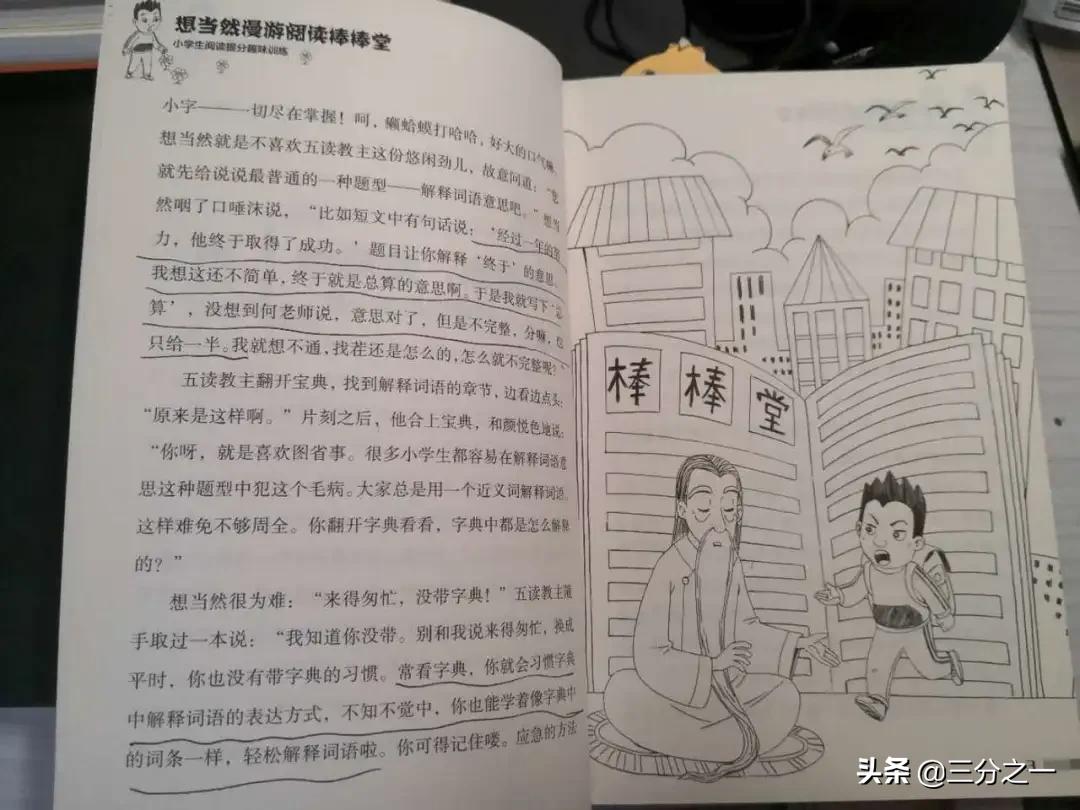 想当然漫游阅读棒棒堂
小学生阅读提分趣味训练
小字———一切尽在掌握！呵，癞蛤蟆打哈哈，好大的口气嘛
想当然就是不喜欢五读教主这份悠闲劲儿，故意问道：“您
就先给说说最普通的一种题型——解释词语意思吧。”想当
然咽了口唾沫说，“比如短文中有句话说：‘经过一年的努
力，他终于取得了成功。’题目让你解释‘终于’的意思。
我想这还不简单，终于就是总算的意思啊。于是我就写下‘总
算’，没想到何老师说，意思对了，但是不完整，分嘛，也
只给一半。我就想不通，找茬还是怎么的，怎么就不完整呢？”
五读教主翻开宝典，找到解释词语的章节，边看边点头：
“原来是这样啊。”片刻之后，他合上宝典，和颜悦色地说：
“你呀，就是喜欢图省事。很多小学生都容易在解释词语意
思这种题型中犯这个毛病。大家总是用一个近义词解释词语，
这样难免不够周全。你翻开字典看看，字典中都是怎么解释
的？”
想当然很为难：“来得匆忙，没带字典！”五读教主随
手取过一本说：“我知道你没带。别和我说来得匆忙，换成
平时，你也没有带字典的习惯。常看字典，你就会习惯字典
中解释词语的表达方式，不知不觉中，你也能学着像字典中
的词条一样，轻松解释词语啦。你可得记住喽。应急的方法
棒棒堂
头条 @三分之一